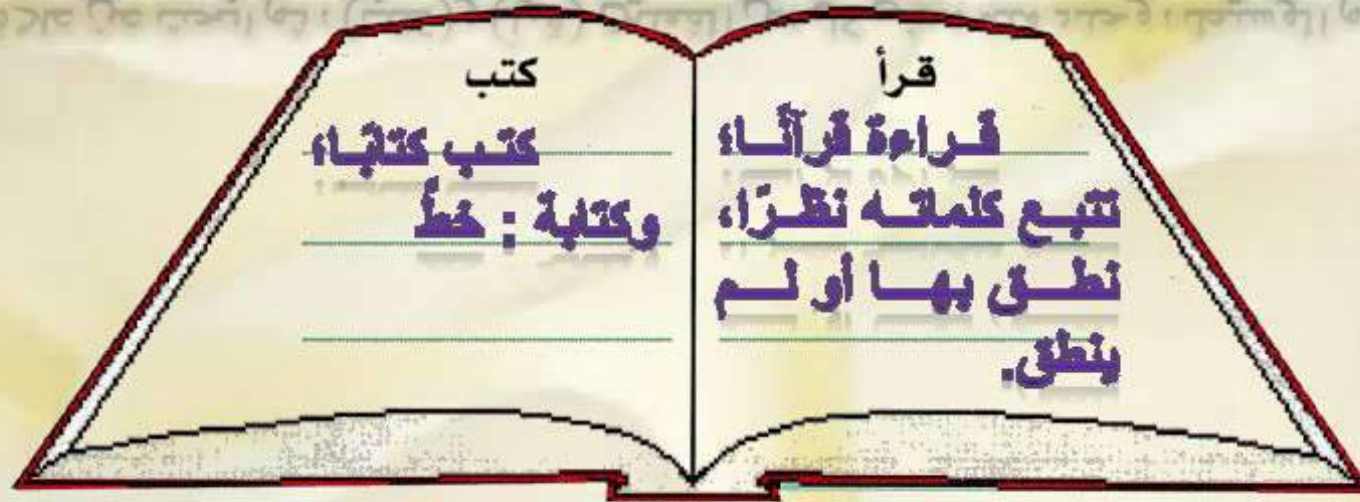 قرأ
قراءة قرآنًا؛
تتبع كلماته نظرًا،
نطق بها أو لم
ينطق.
كتب
كتب كتابًا؛
وكتابة : خطَّ